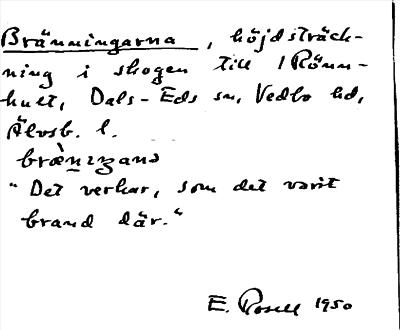 Bränningarna, höjdsträck-
ning i skogen till 1 Rönn-
hult, Dals-Eds sn, Vedbo hd,
Älvsb. l.
bræ̀nıŋana
"Det verkar, som det varit
brand där."
E. Rosell 1950